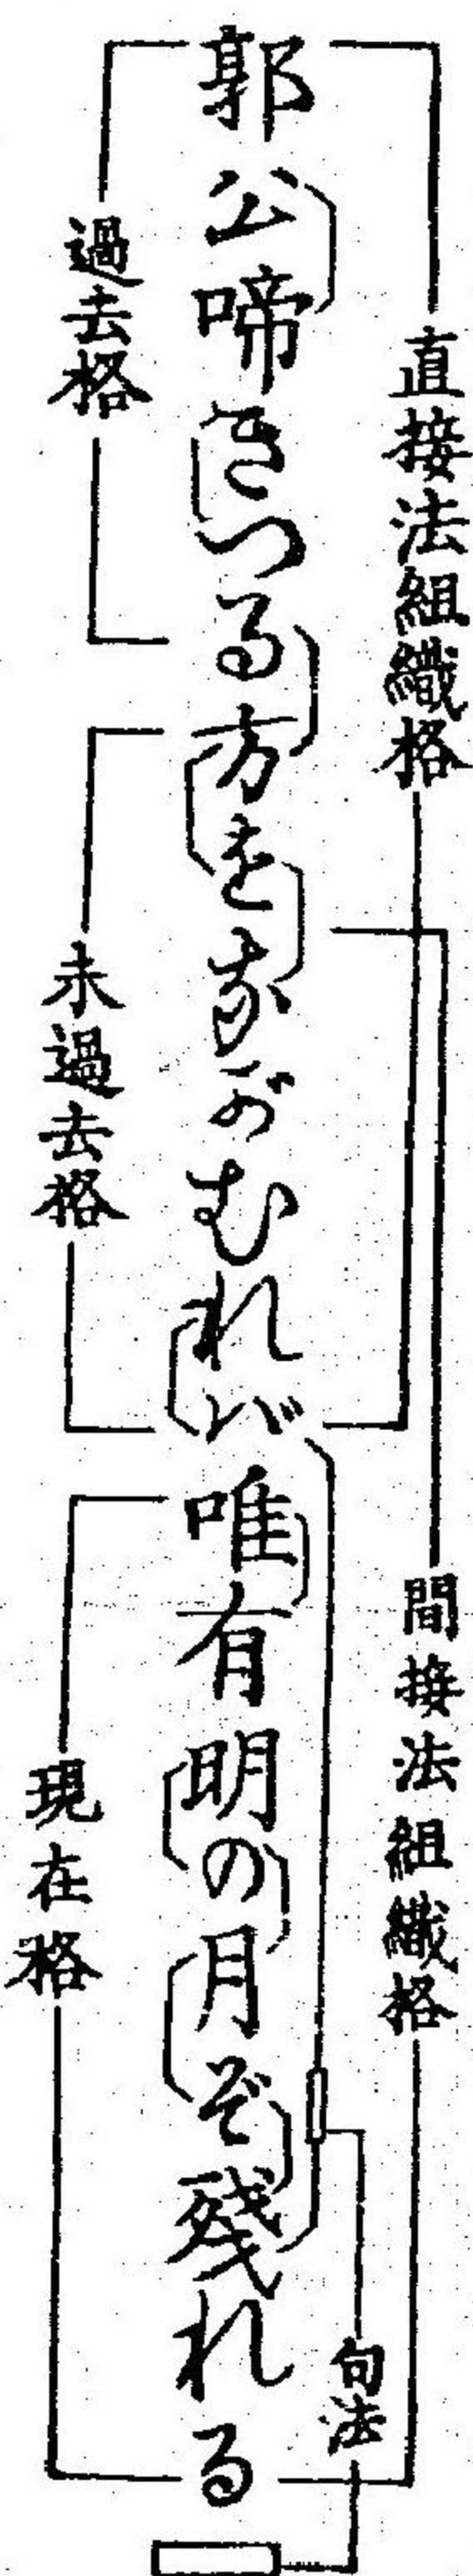 直接法組織格
間接法組織格
句法
郭公啼きつる方をながむれバ唯有明の月ぞ残れる
過去格
未過去格
現在格